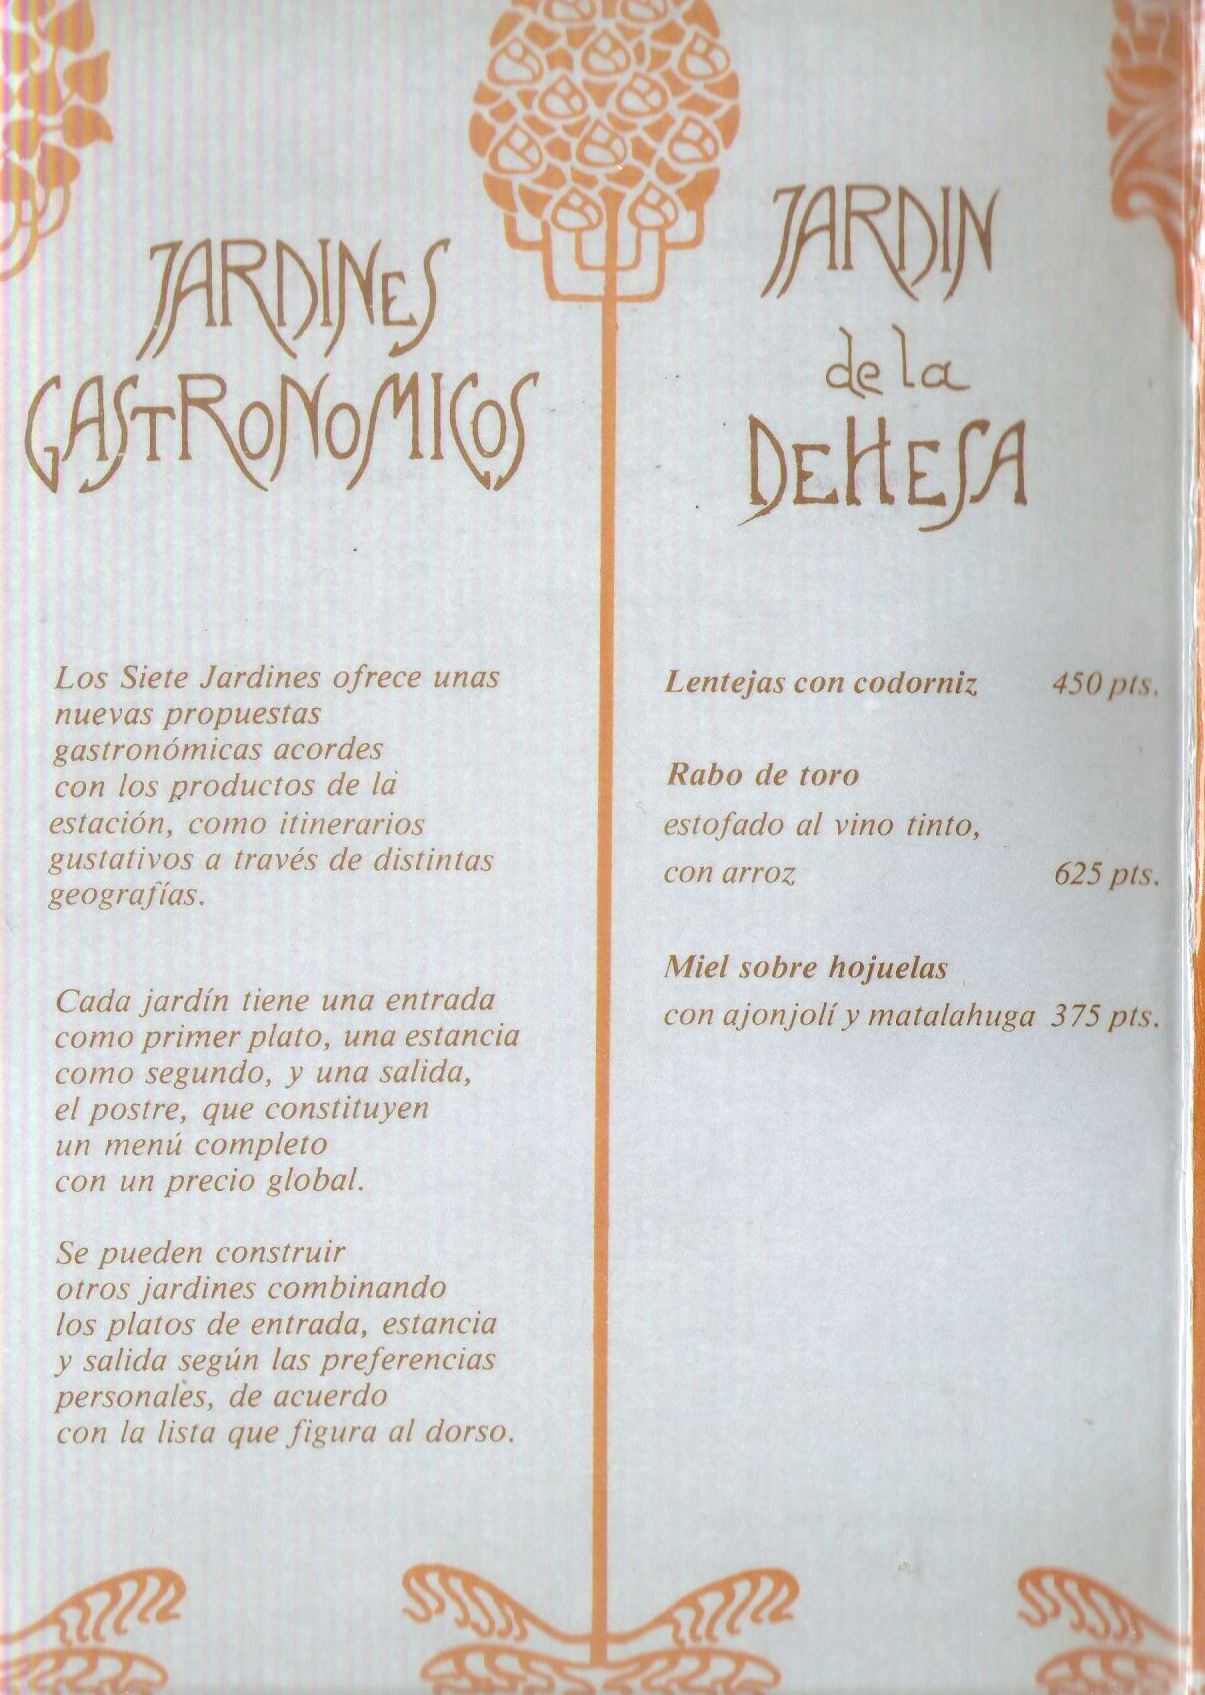 JARDINES
GASTRONOMICOS
Los Siete Jardines ofrece unas
nuevas propuestas
gastronómicas acordes
con los productos de la
estación, como itinerarios
gustativos a través de distintas
geografías.
Cada jardín tiene una entrada
como primer plato, una estancia
como segundo, y una salida,
el postre, que constituyen
un menú completo
con un precio global.
Se pueden construir
otros jardines combinando
los platos de entrada, estancia
y salida según las preferencias
personales, de acuerdo
con la lista que figura al dorso.
JARDIN
de la
DEHESA
Lentejas con codorniz 450 pts.
Rabo de toro
estofado al vino tinto,
con arroz 625 pts.
Miel sobre hojuelas
con ajonjolí y matalahuga 375 pts.